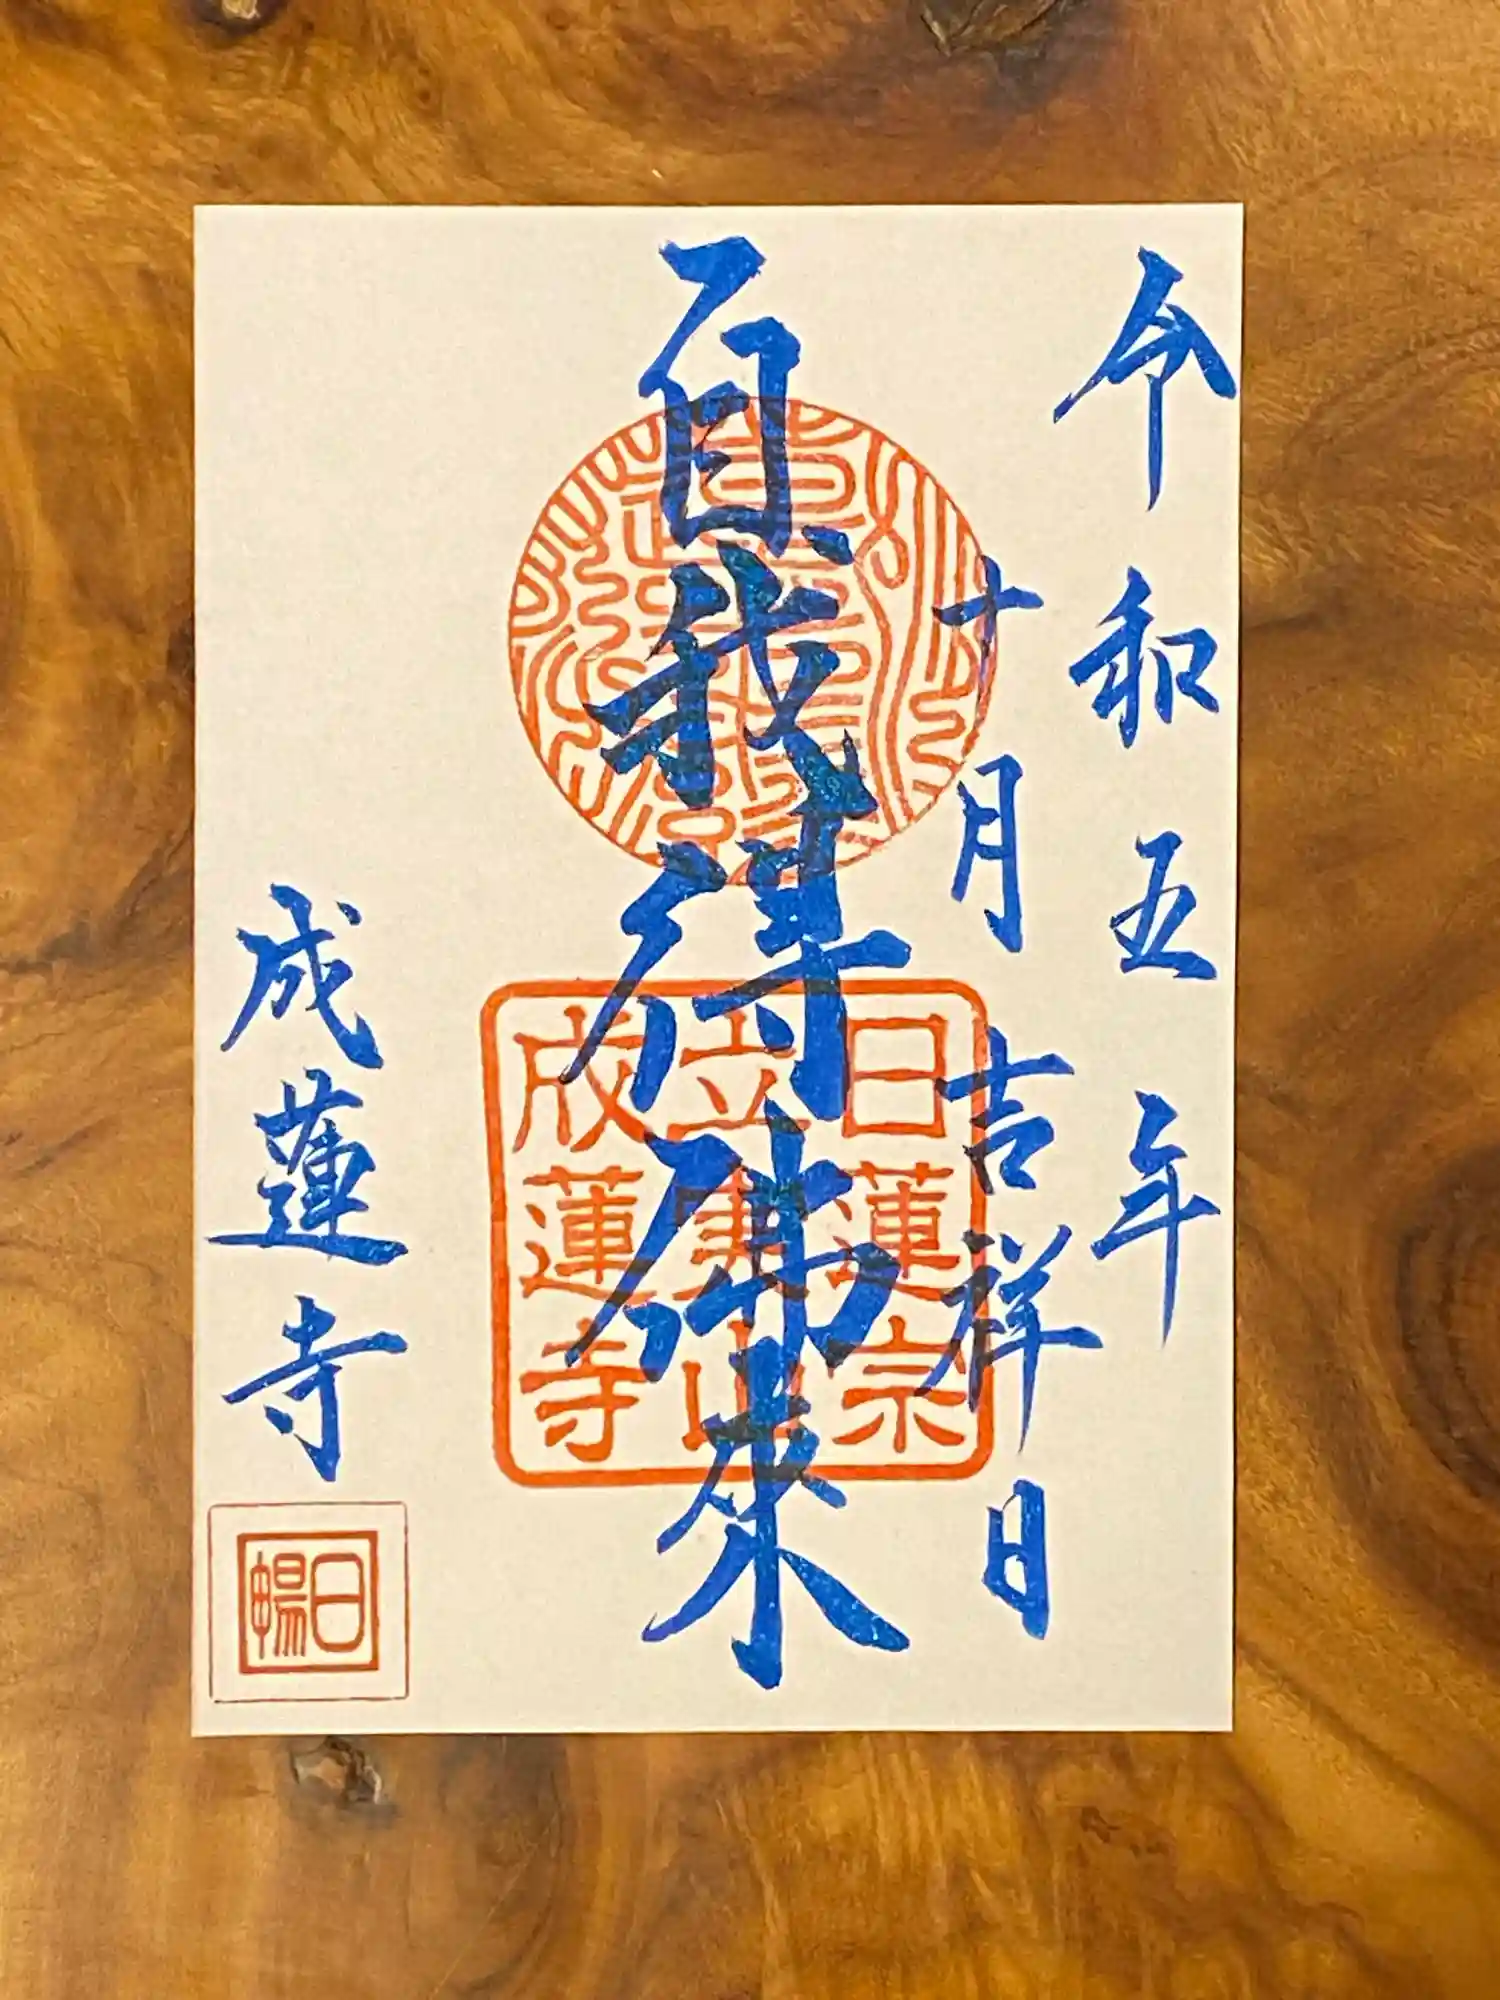 令和五年
十月吉祥日
自我得佛來
成蓮寺
日蓮宗
立東山
成蓮寺
日暢